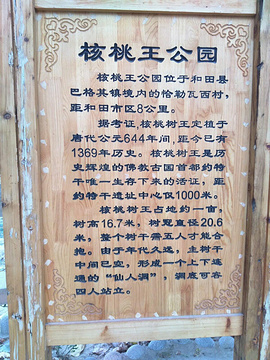 核桃王公园
核桃王公园位于和田县
巴格其镇境内的恰勒瓦西村，
距和田市区8公里。
据考证，核桃树王定植于
唐代公元644年间，距今已有
1369年历史。核桃树王是历
史辉煌的佛教古国首都约特
干唯一生存下来的活证，距
约特干遗址中心仅1000米。
核桃树王占地约一亩，
树高16.7米，树冠直径20.6
米，整个树干需五人才能合
抱。由于年代久远，主树干
中间已空，形成一个上下连
通的“仙人洞”，洞底可容
四人站立。